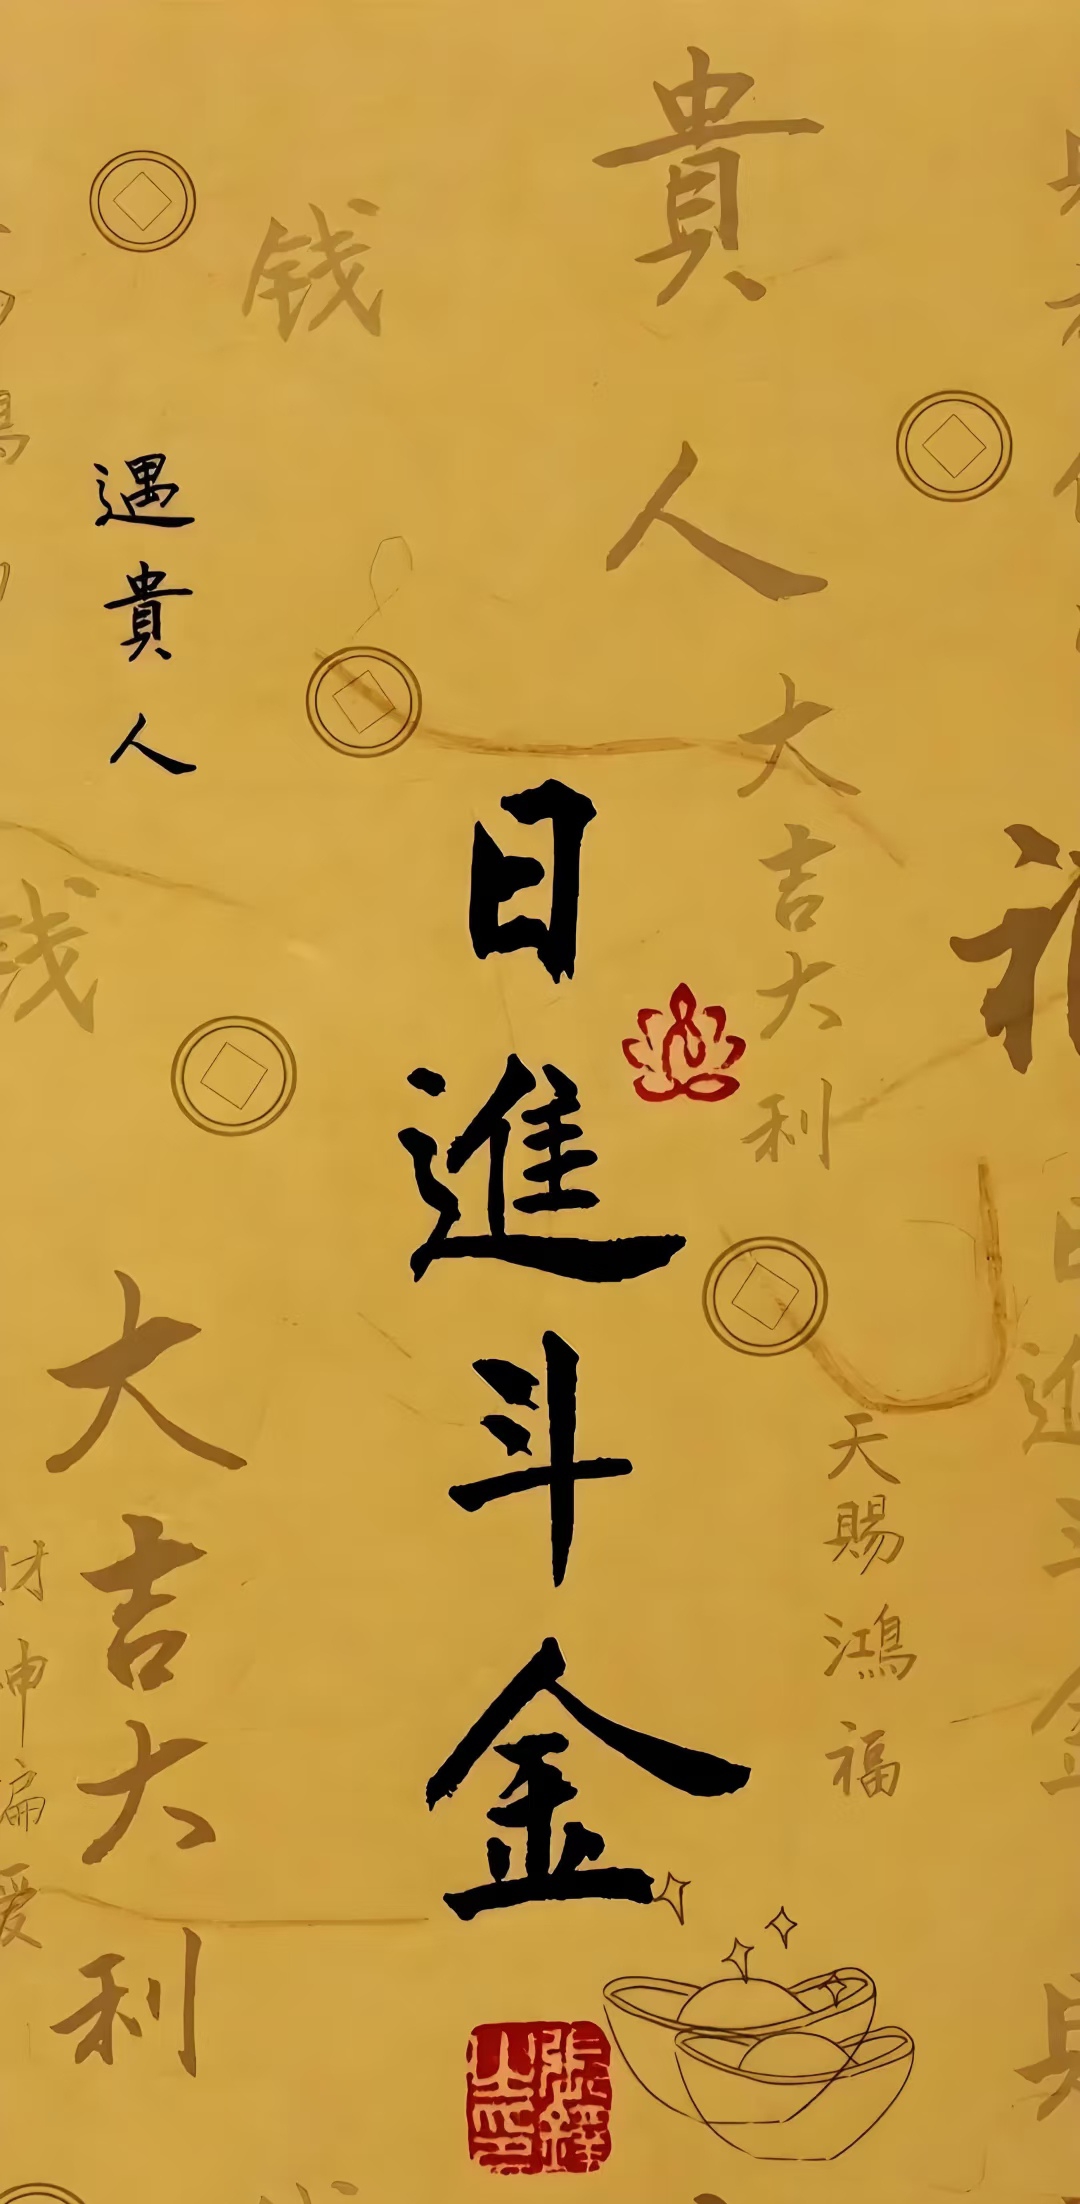 日進斗金
遇貴人
貴人
钱
大吉大利
天賜鴻福
日進斗金
钱
大吉大利
財神偏爱